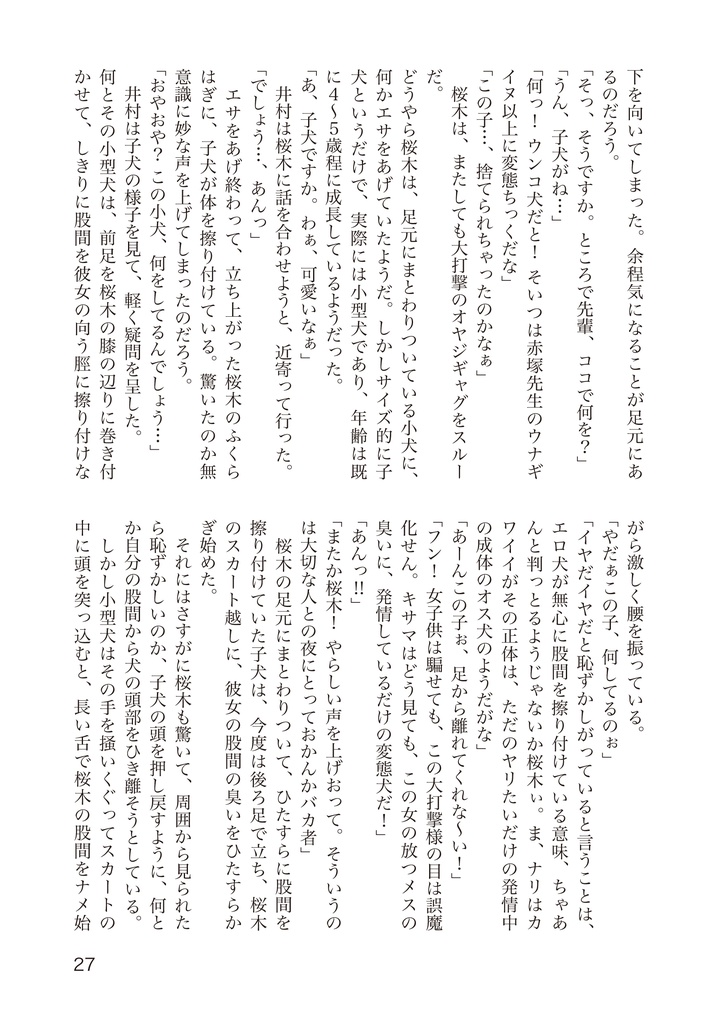 下を向いてしまった。余程気になることが足元にあ
るのだろう。
「そっ、そうですか。ところで先輩、ココで何を？」
「うん、子犬がね…」
「何っ！ウンコ犬だと！そいつは赤塚先生のウナギ
イヌ以上に変態ちっくだな」
「この子…、捨てられちゃったのかなぁ」
　桜木は、またしても大打撃のオヤジギャグをスルー
だ。
どうやら桜木は、足元にまとわりついている小犬に、
何かエサをあげていたようだ。しかしサイズ的に子
犬というだけで、実際には小型犬であり、年齢は既
に４〜５歳程に成長しているようだった。
「あ、子犬ですか。わぁ、可愛いなぁ」
　井村は桜木に話を合わせようと、近寄って行った。
「でしょう…、あんっ」
　エサをあげ終わって、立ち上がった桜木のふくら
はぎに、子犬が体を擦り付けている。驚いたのか無
意識に妙な声を上げてしまったのだろう。
「おやおや？この小犬、何をしてるんでしょう…」
　井村は子犬の様子を見て、軽く疑問を呈した。
何とその小型犬は、前足を桜木の膝の辺りに巻き付
かせて、しきりに股間を彼女の向う脛に擦り付けな
がら激しく腰を振っている。
「やだぁこの子、何してるのぉ」
「イヤだイヤだと恥ずかしがっていると言うことは、
エロ犬が無心に股間を擦り付けている意味、ちゃあ
んと判っとるようじゃないか桜木ぃ。ま、ナリはカ
ワイイがその正体は、ただのヤリたいだけの発情中
の成体のオス犬のようだがな」
「あーんこの子ぉ、足から離れてくれな〜い！」
「フン！女子供は騙せても、この大打撃様の目は誤魔
化せん。キサマはどう見ても、この女の放つメスの
臭いに、発情しているだけの変態犬だ！」
「あんっ!!」
「またか桜木！やらしい声を上げおって。そういうの
は大切な人との夜にとっておかんかバカ者」
　桜木の足元にまとわりついて、ひたすらに股間を
擦り付けていた子犬は、今度は後ろ足で立ち、桜木
のスカート越しに、彼女の股間の臭いをひたすらか
ぎ始めた。
　それにはさすがに桜木も驚いて、周囲から見られた
ら恥ずかしいのか、子犬の頭を押し戻すように、何と
か自分の股間から犬の頭部をひき離そうとしている。
　しかし小型犬はその手を掻いくぐってスカートの
中に頭を突っ込むと、長い舌で桜木の股間をナメ始
27